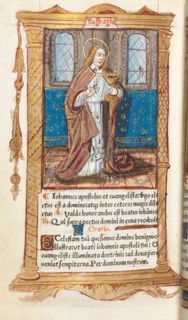 Suffragia
Iohannes apostolus et euangelista: v̄go ele
ctus est a domino atq; inter ceteros magis dile
ctus. Valde honorandus est beatus iohānes
Qui supra pectus domini in cena recubuit
Oratio.
Ecclesiam tuā quesumus domine benignus
illustra vt beati iohannis apostoli tui: 
euangeliste illuminata doctrinis ad dona per
ueniat sempiterna. Per dominum nostrum.